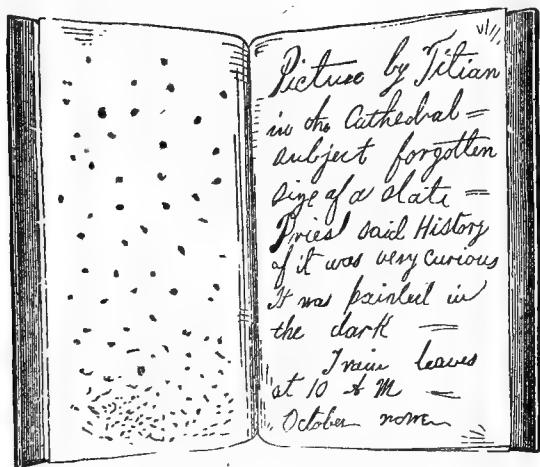 Picture by Titian
in the Cathedral =
subject forgotten
size of a slate =
Priest said History
of it was very curious
It was painted in
the dark =
Train leaves
at 10 A M —
October